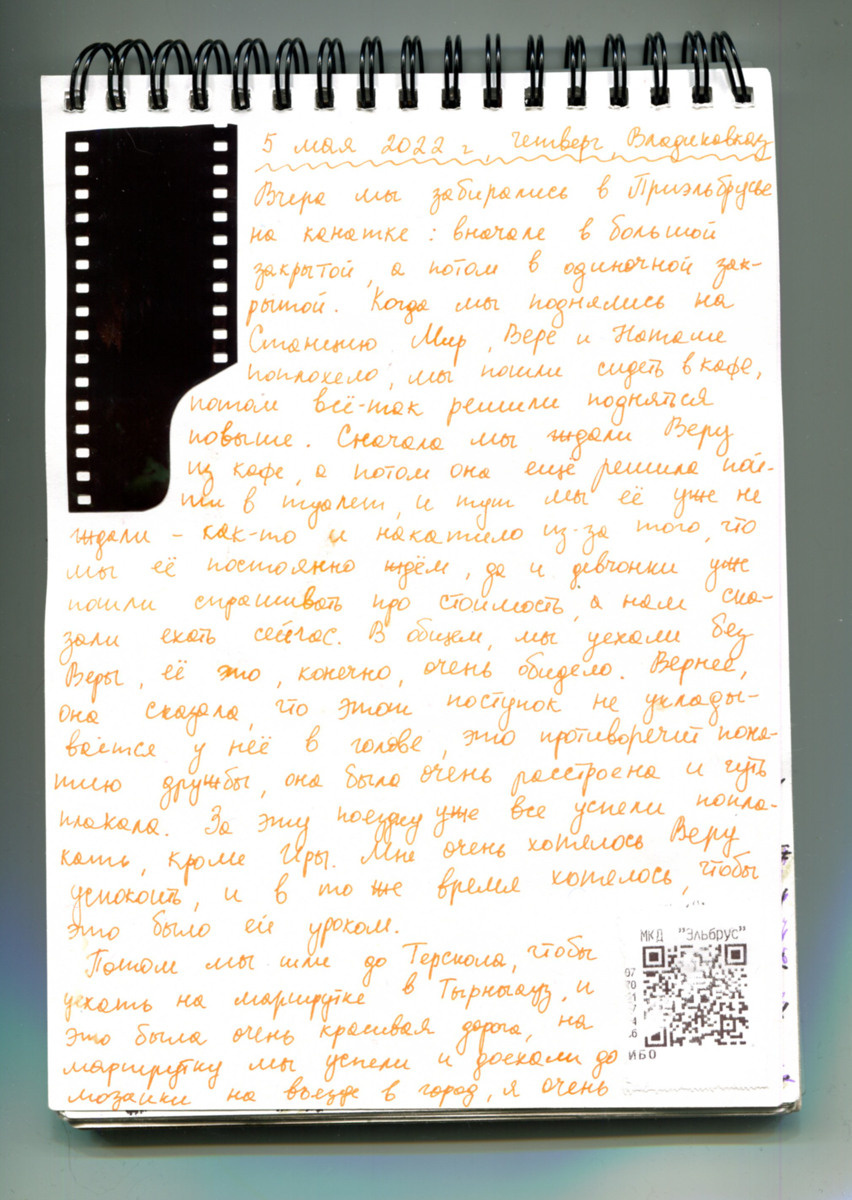 5 мая 2022 г, четверг, Владикавказ
Вчера мы забирались в Приэльбрусье
на канатке: вначале в большой
закрытой, а потом в одиночной зак-
рытой. Когда мы поднялись на
Станцию Мир, Вере и Наташе
поплохело, мы пошли сидеть в кафе,
потом всё-так решили подняться
повыше. Сначала мы ждали Веру
из кафе, а потом она ещё решила пой-
ти в туалет, и тут мы её уже не
ждали – как-то и накатило из-за того, что
мы её постоянно ждём, да и девчонки уже
пошли спрашивать про стоимость, а нам ска-
зали ехать сейчас. В общем, мы уехали без
Веры, её это, конечно, очень обидело. Вернее,
она сказала, что этот поступок не уклады-
вается у неё в голове, это противоречит поня-
тию дружбы, она была очень расстроена и чуть
плакала. За эту поездку уже все успели попла-
кать, кроме Иры. Мне очень хотелось Веру
успокоить, и в то же время хотелось, чтобы
это было ей уроком.
Потом мы шли до Терскола, чтобы
уехать на маршрутке в Тырныауз, и
это была очень красивая дорога, на
маршрутку мы успели и доехали до
мозаики на въезде в город, я очень
МКД "Эльбрус"
07
70
21
7
4
6
ИБО